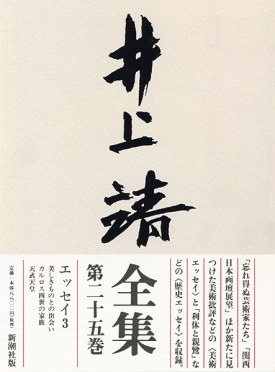 井上靖
全集
第二十五巻
「忘れ得ぬ芸術家たち」「関西
日本画壇展望」ほか新たに見
つけた美術批評などの〈美術
エッセイ〉と「利休と親鸞」な
どの〈歴史エッセイ〉を収録。
エッセイ3
美しきものとの出会い
カルロス四世の家族
天武天皇
新潮社版